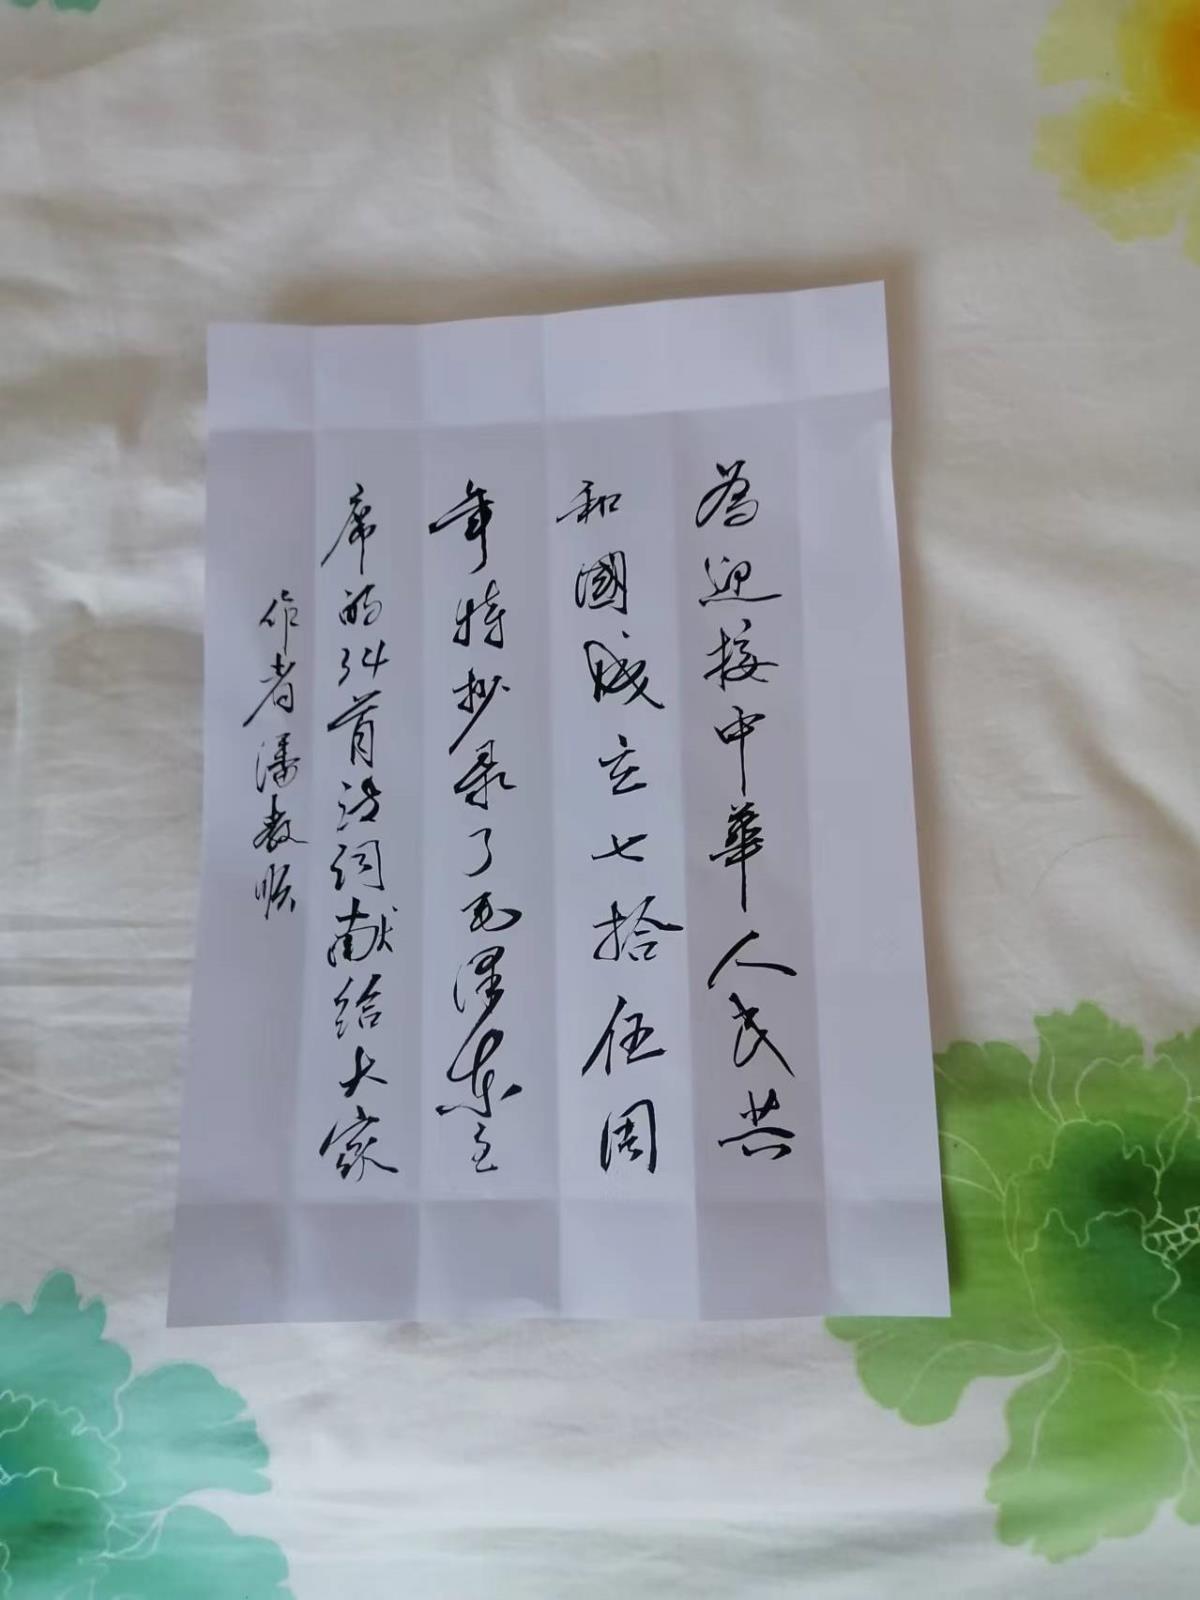 為迎接中華人民共
和國成立七拾伍周
年特抄录了毛泽东主
席的34首诗词献给大家
作者潘表顺